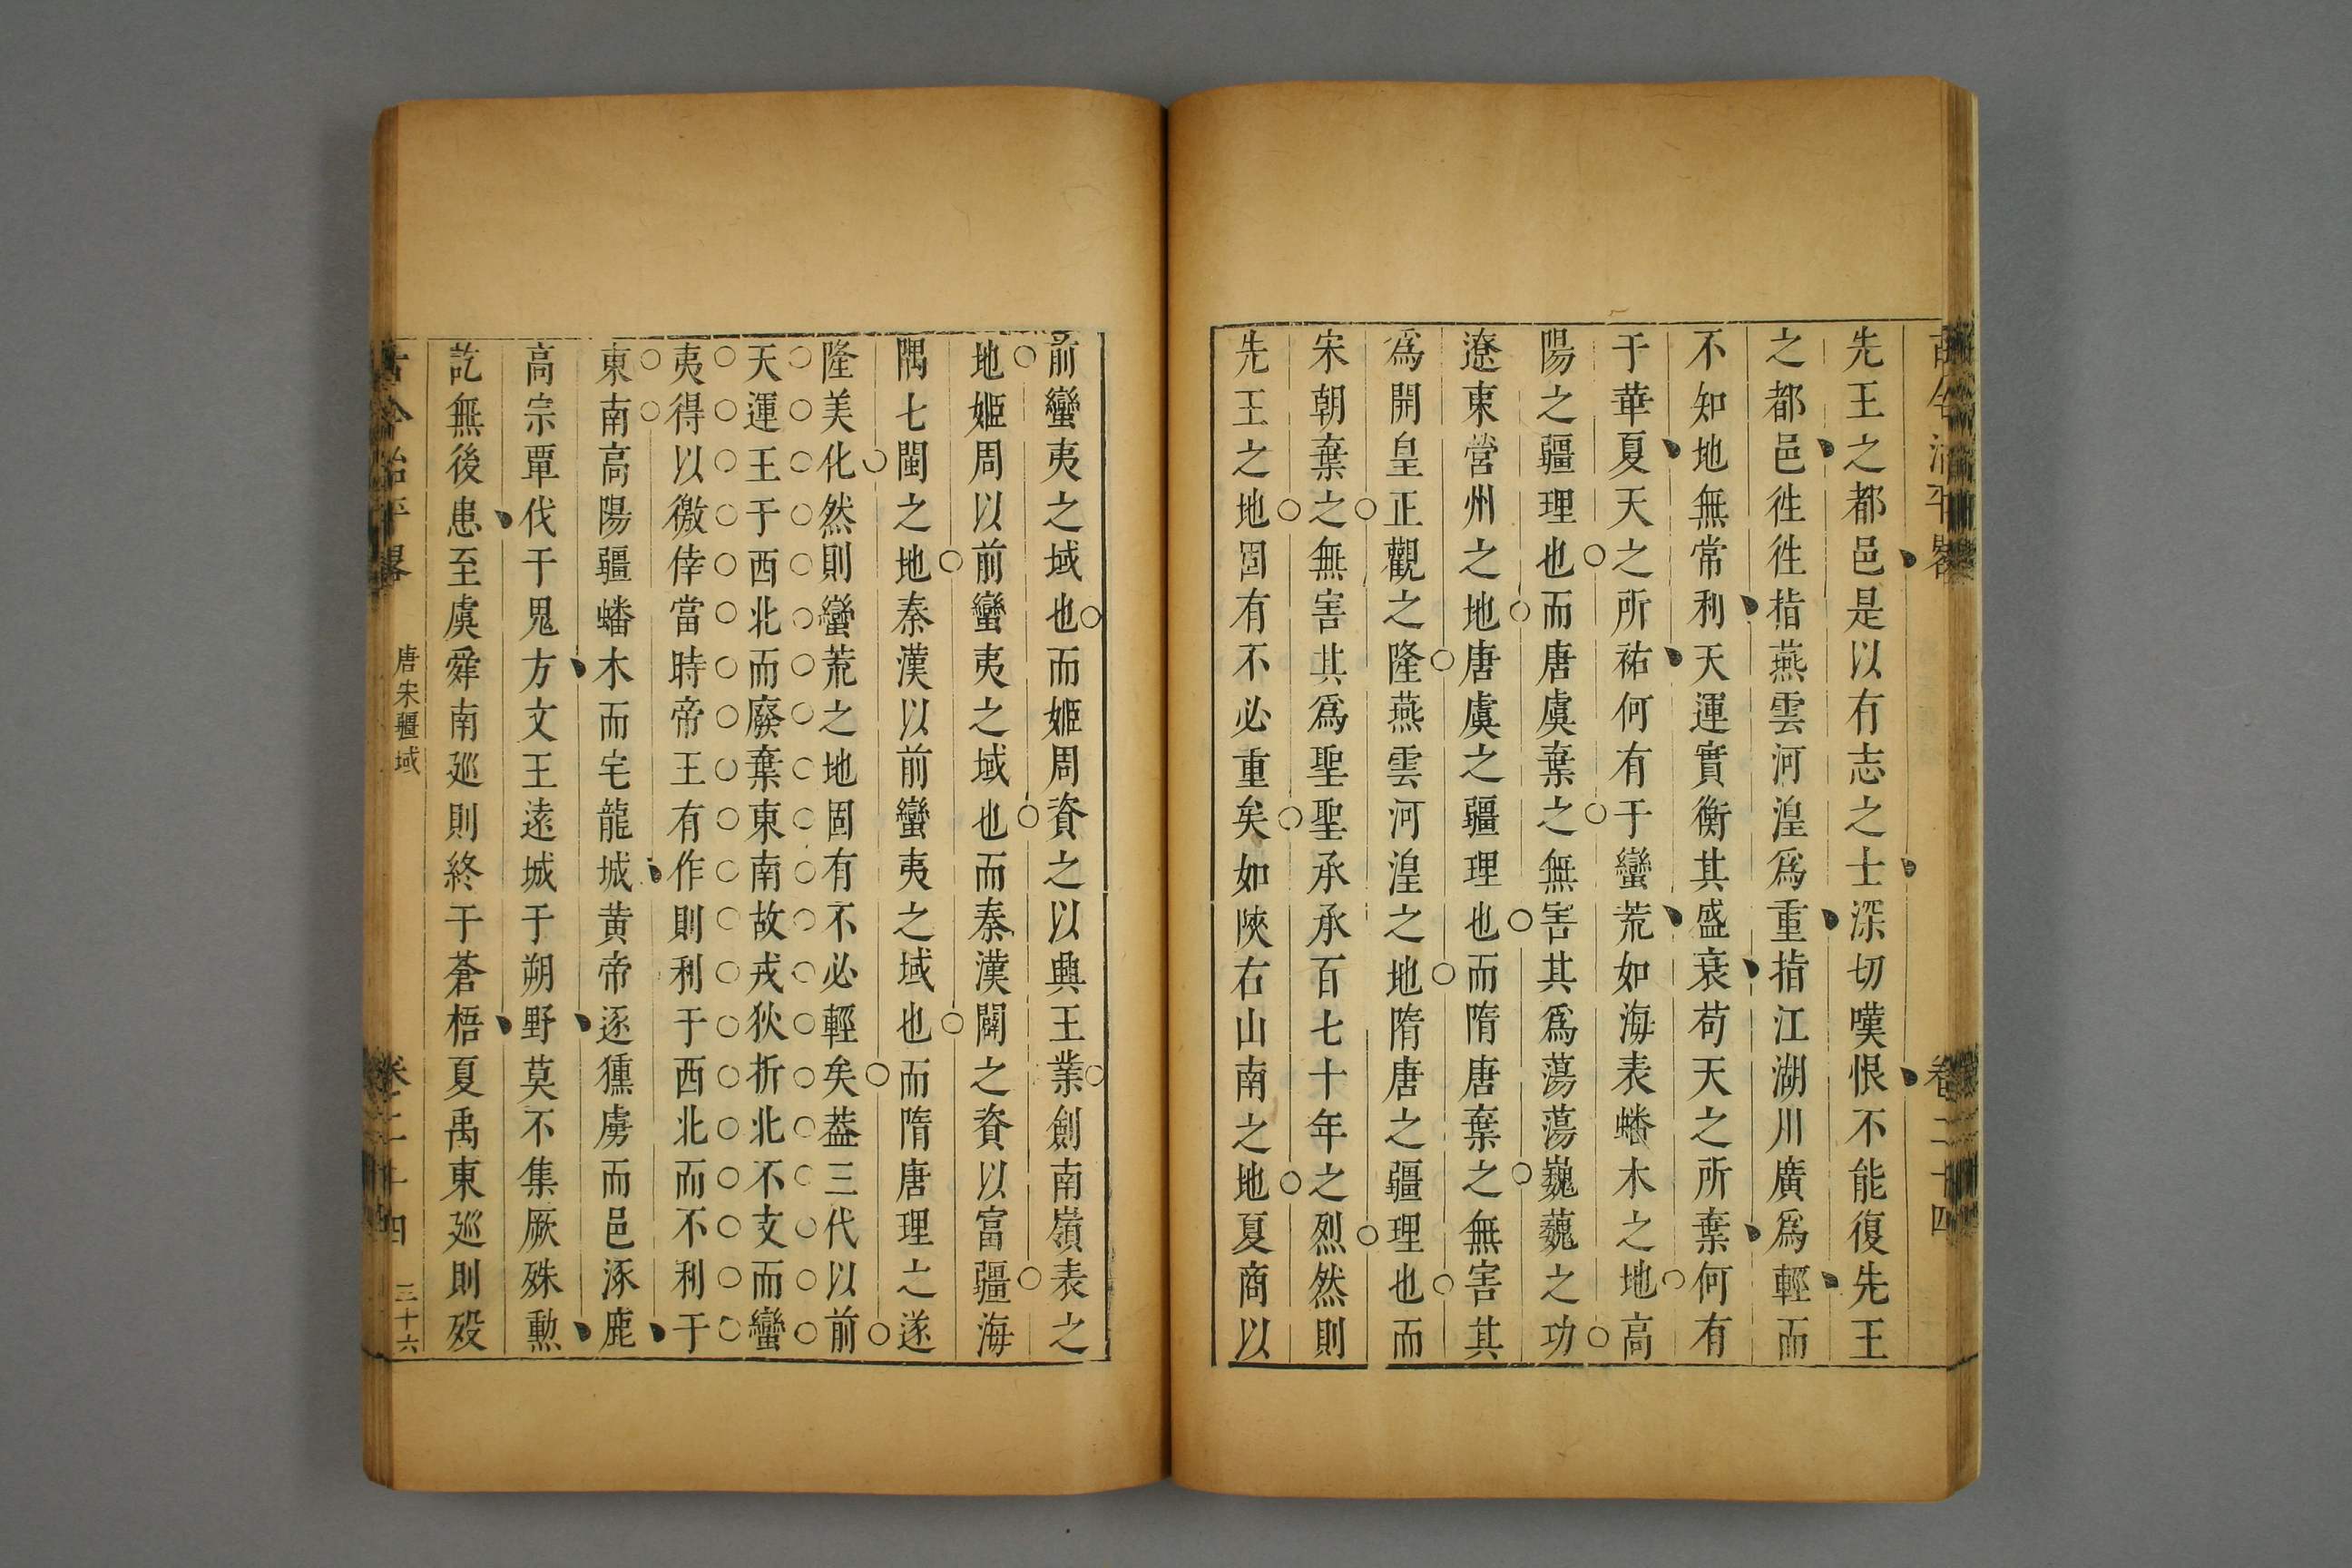 古今治平畧 卷二十四
先王之都邑是以有志之士深切嘆恨不能復先王
之都邑徃徃指燕雲河湟爲重指江湖川廣爲輕而
不知地無常利天運實衡其盛衰苟天之所棄何有
于華夏天之所祐何有于蠻荒如海表蟠木之地高
陽之疆理也而唐虞棄之無害其爲蕩蕩巍巍之功
遼東營州之地唐虞之疆理也而隋唐棄之無害其
爲開皇正觀之隆燕雲河湟之地隋唐之疆理也而
宋朝棄之無害其爲聖聖承承百七十年之烈然則
先王之地固有不必重矣如陝右山南之地夏商以
前蠻夷之域也而姬周資之以興王業劍南嶺表之
地姬周以前蠻夷之域也而秦漢闢之資以富疆海
隅七閩之地秦漢以前蠻夷之域也而隋唐理之遂
隆美化然則蠻荒之地固有不必輕矣葢三代以前
天運王于西北而廢棄東南故戎狄折北不支而蠻
夷得以徼倖當時帝王有作則利于西北而不利于
東南高陽疆蟠木而宅龍城黄帝逐獯虜而邑涿鹿
高宗覃伐于鬼方文王遠城于朔野莫不集厥殊勲
訖無後患至虞舜南廵則終于蒼梧夏禹東廵則殁
古今治平畧 唐宋疆域 卷二十四 三十六